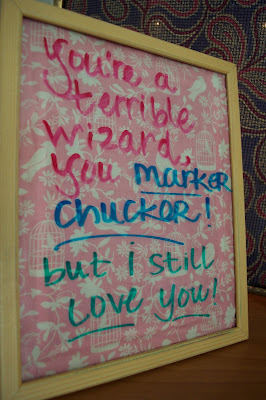 you're a
terrible
wizard,
you marker
chucker!
but i still
LOVE YOU!